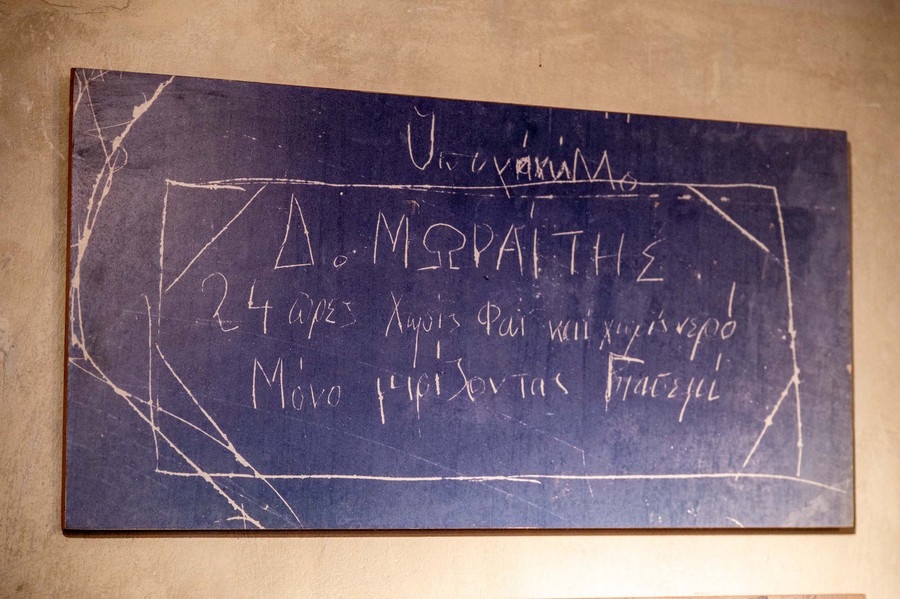 Δ. ΜΩΡΑΪΤΗΣ
24 ὧρες Χωρίς Φαΐ καί χωρίς νερό
Μόνο μυρίζοντας Γιασεμί